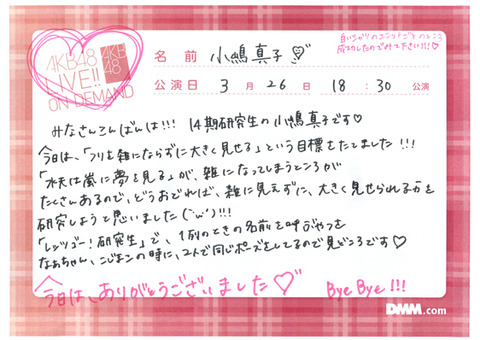 AKB48
LIVE!!
ON DEMAND
AKB
48
名前 小嶋真子
公演日 3月26日 18:30公演
みなさんこんばんは!!! 14期研究生の小嶋真子です♡
今日は、「フリを雑にならずに大きく見せる」という目標をたてました!!!
「水夫は嵐に夢を見る」が、雑になってしまうところが
たくさんあるので、どうおどれば、雑に見えずに、大きく見せられるかを
研究しようと思いました(´・ω・`)!!!
「レッツゴー!研究生」で、1列のときの名前を呼ぶやつを
なぁちゃん、こじまこの時に、2人で同じポーズをしてるので見どころです♡
今日は、ありがとうございました♡
Bye Bye!!!
DMM.com